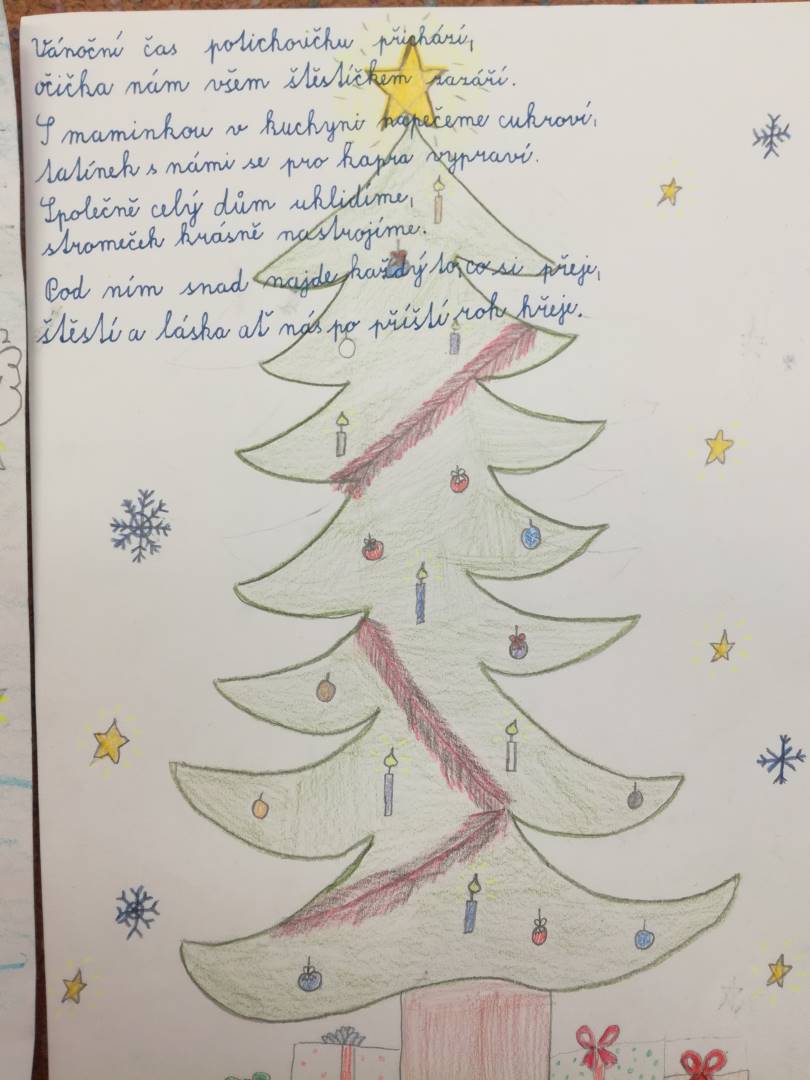 Vánoční čas potichoučku přichází,
očička nám všem štěstíčkem rozzáří.
S maminkou v kuchyni napečeme cukroví,
tatínek s námi se pro kapra vypraví.
Společně celý dům uklidíme,
stromeček krásně nastrojíme.
Pod ním snad najde každý to, co si přeje,
štěstí a láska ať nás po příští rok hřeje.